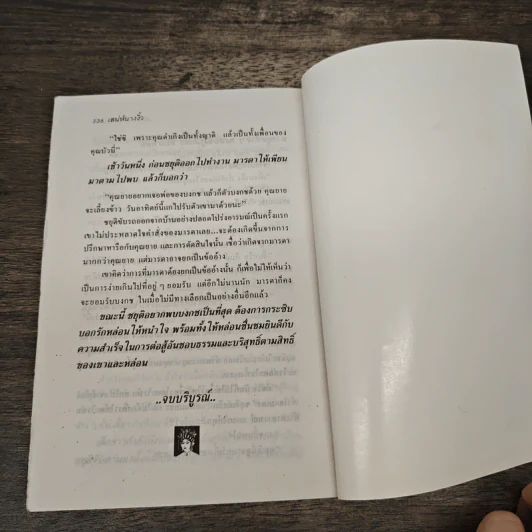 ๓๓๔ เสน่ห์นางงิ้ว
"ใช่ซิ เพราะคุณดำเกิงเป็นทั้งญาติ แล้วเป็นทั้งเพื่อนของ
คุณบัวนี่"
เช้าวันหนึ่ง ก่อนชยุติออกไปทำงาน มารดาให้เพียน
มาตามไปพบ แล้วก็บอกว่า
"คุณยายอยากเจอพ่อของบงกช แล้วก็ตัวบงกชด้วย คุณยาย
จะเลี้ยงข้าว วันอาทิตย์นี้แกไปรับตัวเขามาด้วยนะ"
ชยุติขับรถออกจากบ้านอย่างปลอดโปร่งอารมณ์เป็นครั้งแรก
เขาไม่ประหลาดใจคำสั่งของมารดาเลย...จะต้องเกิดขึ้นจากการ
ปรึกษาหารือกับคุณยาย และการตัดสินใจนั้น เชื่อว่าเกิดจากมารดา
มากกว่าคุณยาย แต่มารดาอาจยกเป็นข้ออ้าง
เขาคิดว่าการที่มารดาต้องยกเป็นข้ออ้างนั้น ก็เพื่อไม่ให้เห็นว่า
เป็นการง่ายเกินไปที่อยู่ ๆ ยอมรับ แต่อีกไม่นานนัก มารดาก็คง
จะยอมรับบงกช ในเมื่อไม่มีทางเลือกเป็นอย่างอื่นอีกแล้ว
ขณะนี้ ชยุติอยากพบบงกชเป็นที่สุด ต้องการกระซิบ
บอกรักหล่อนให้หนำใจ พร้อมทั้งให้หล่อนชื่นชมยินดีกับ
ความสำเร็จในการต่อสู้อันชอบธรรมและบริสุทธิ์ตามสิทธิ์
ของเขาและหล่อน
..จบบริบูรณ์..